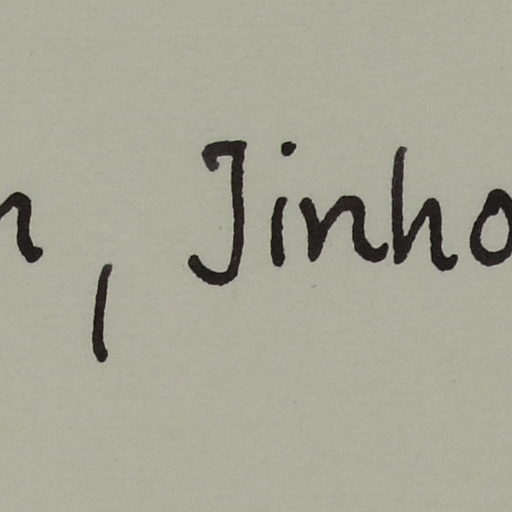 n, Jinho